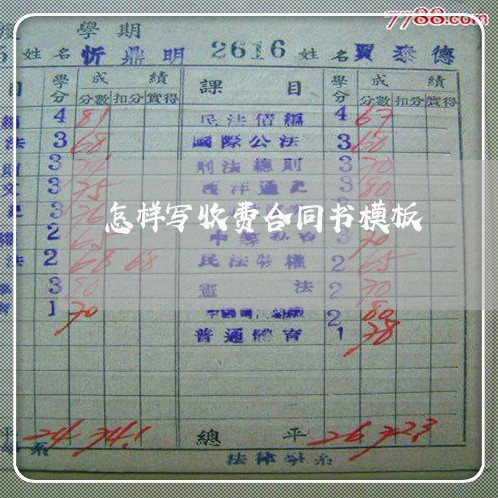 7788.com
學期
5 姓名 忻鼎明 2616 姓名 賈泰德
目 學分 成績 課目 學分 成績
分數 扣分 實得 分數 扣分 實得
4 81 民法債編 4 67
法 3 68 國際公法 3 60
3 刑法總則 3 70
3 75 西洋通史 3 80
怎样写收费合同书模板
2 65 3 70
法 2 68 68 民法物權 2 65
3 80 憲法 2 70
1 70 2 80
普通體育 1 78
平 24 74.1 總平 26 72.3
系 法律學系